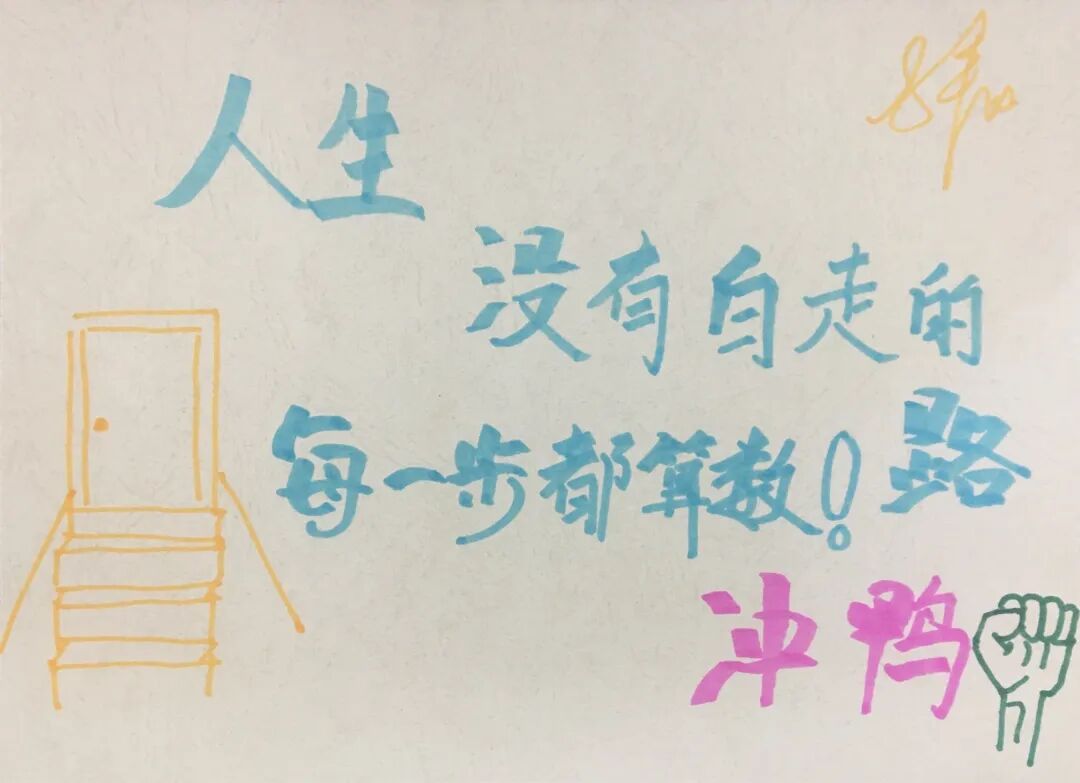 人生
没有白走的
路
每一步都算数！
冲鸭